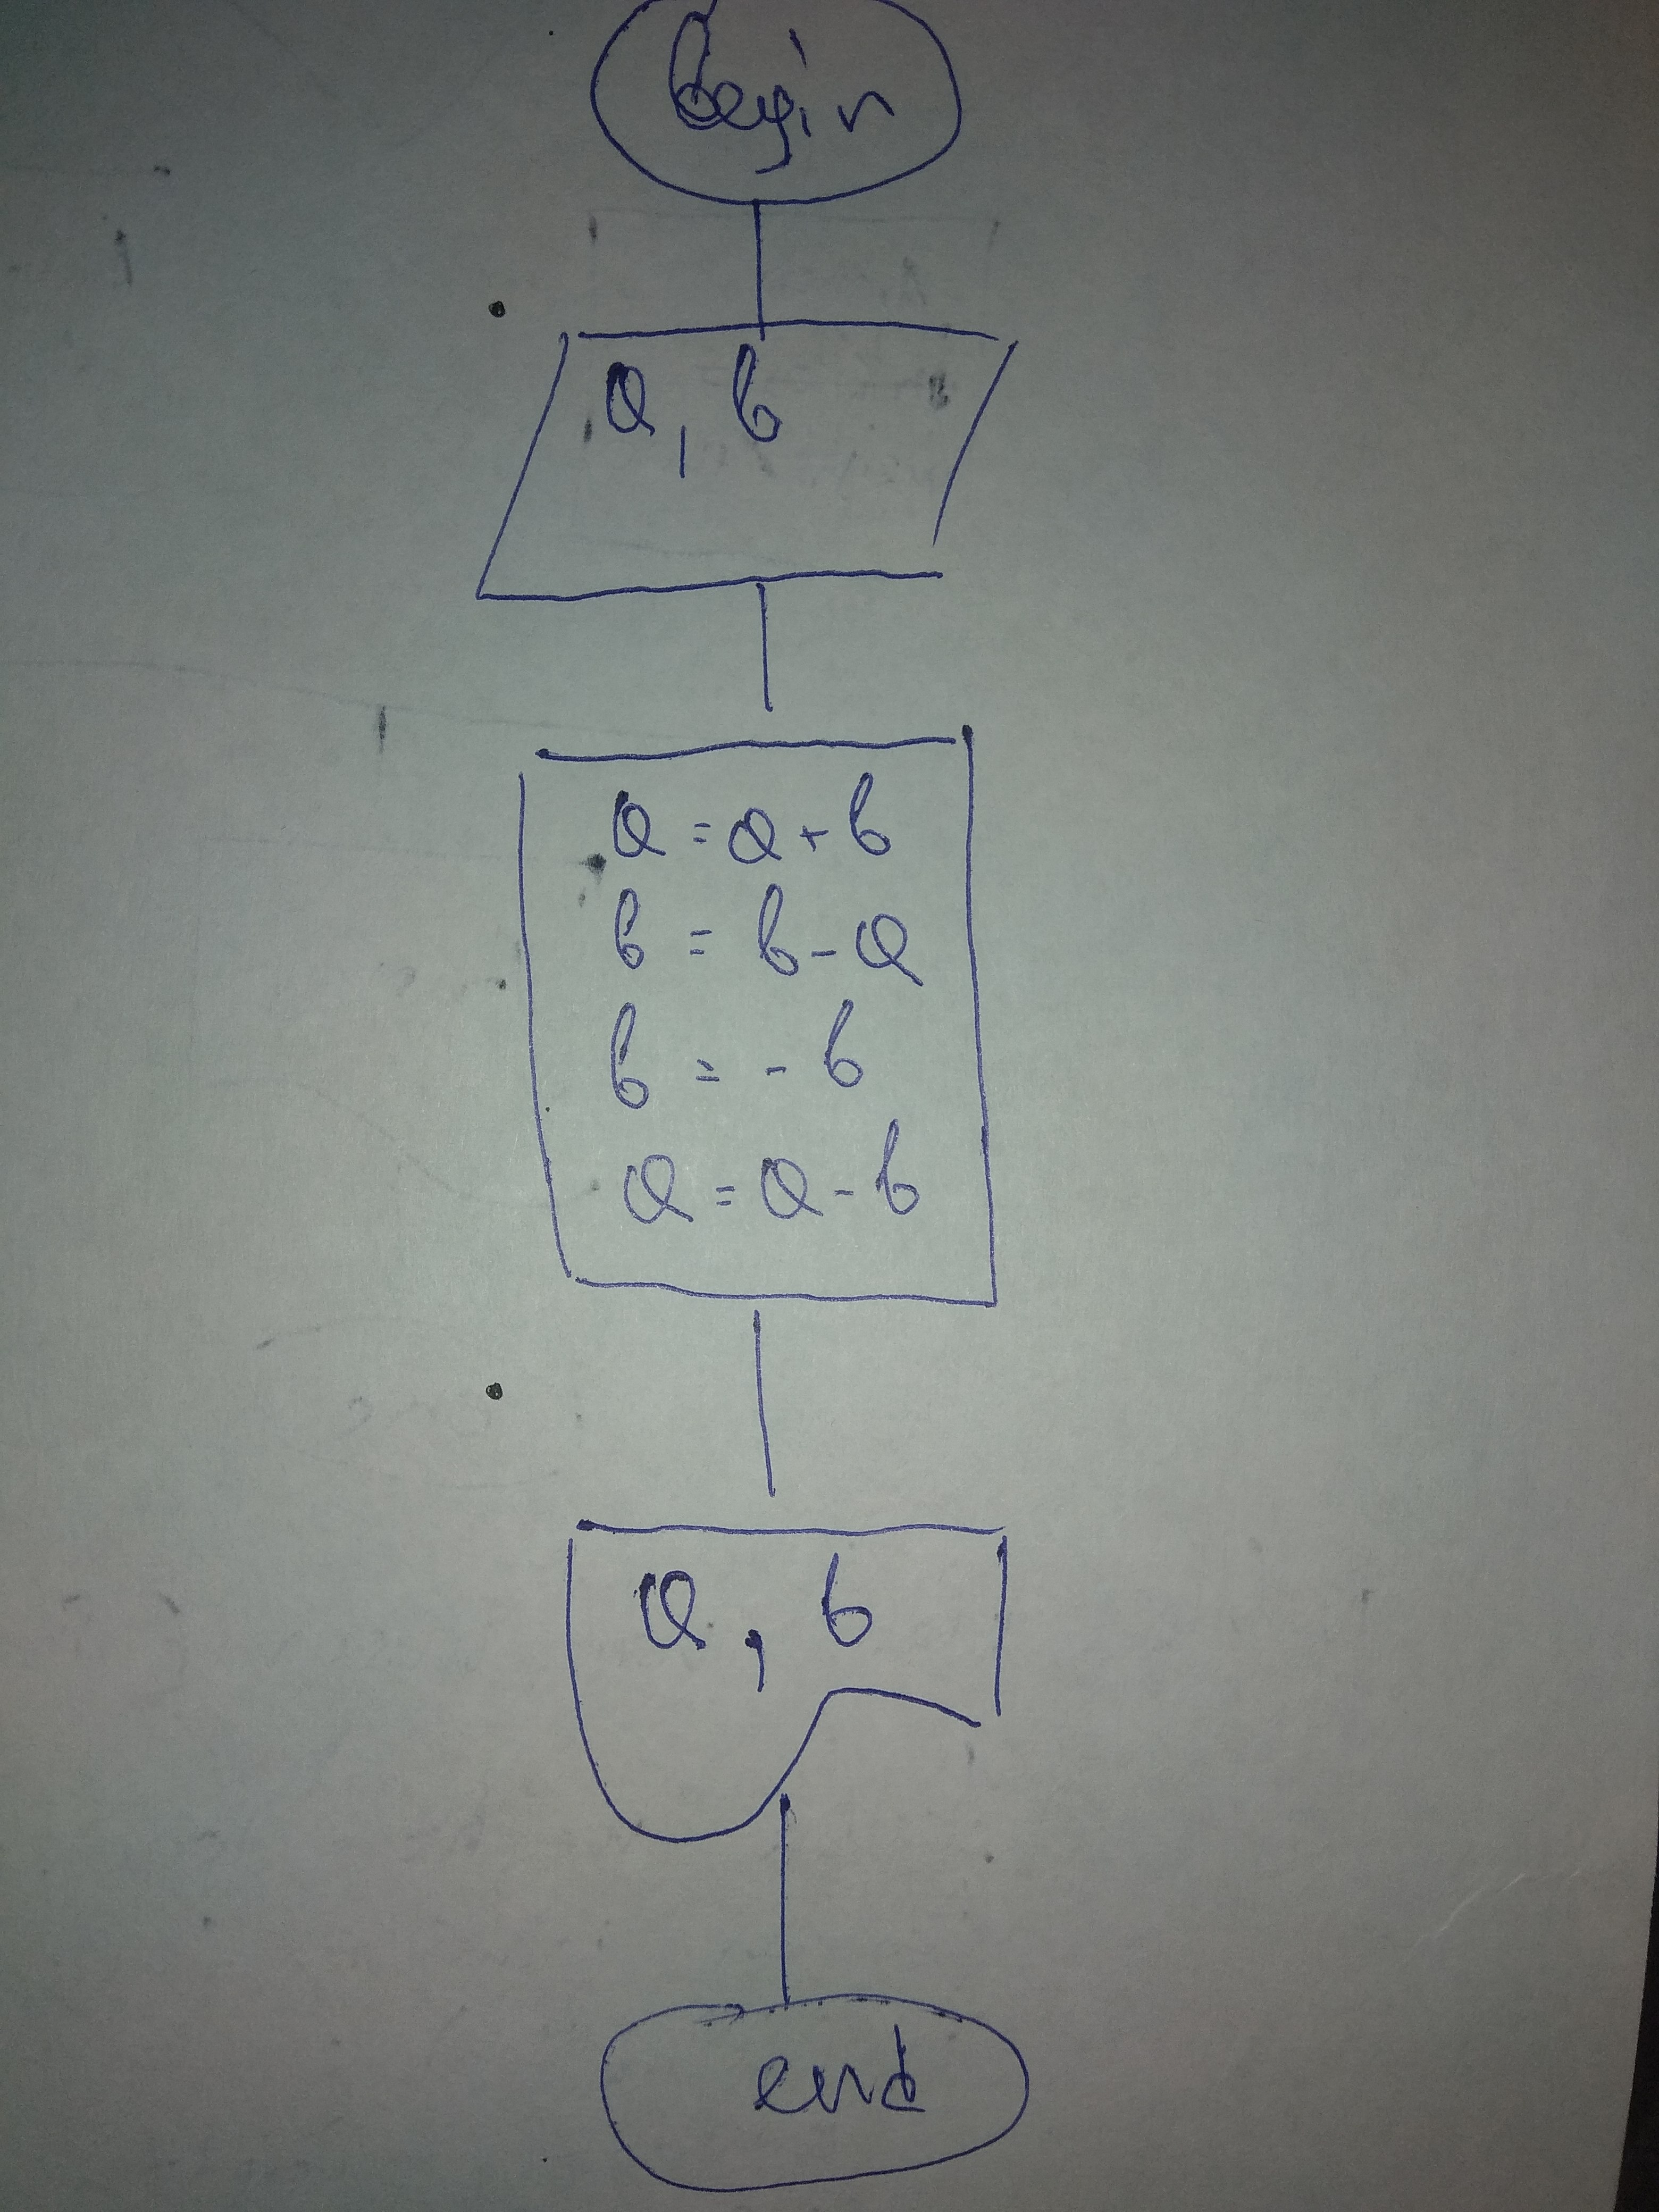 begin
a, b
a = a + b
b = b - a
b = - b
a = a - b
a, b
end